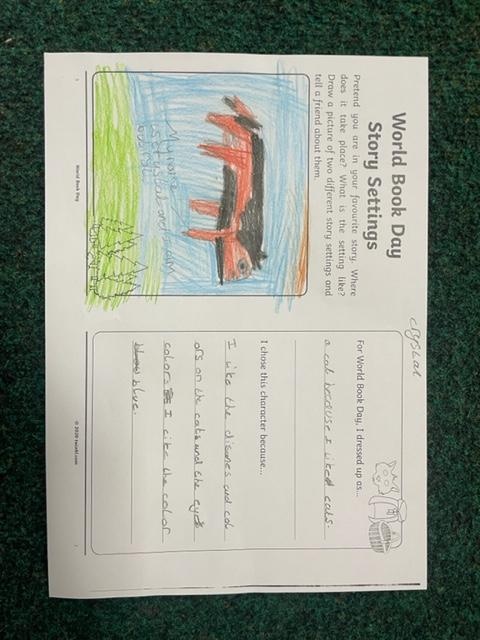 World Book Day
Story Settings
Pretend you are in your favourite story. Where
does it take place? What is the setting like?
Draw a picture of two different story settings and
tell a friend about them.
My name
is crystal and I am
World Book Day
crystal
For World Book Day, I dressed up as...
a cat because I liked cats.
I chose this character because...
I like the disines and col
ors on the cats and the eye
colors I like the color
blue.
© 2020 twinkl.com